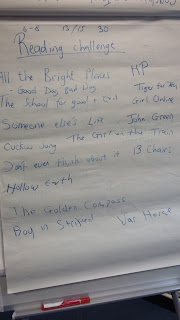 6-8 13/15 30
Reading challenge
All the Bright Places HP
- Good Day, Bad Day Tiger for
The School for good + evil Girl Online
Someone else's Life John Green
Cuckoo Song The Girl on the Train
Don't even think about it 13 Chairs
Hollow Earth
The Golden Compass
Boy in Striped War Horse